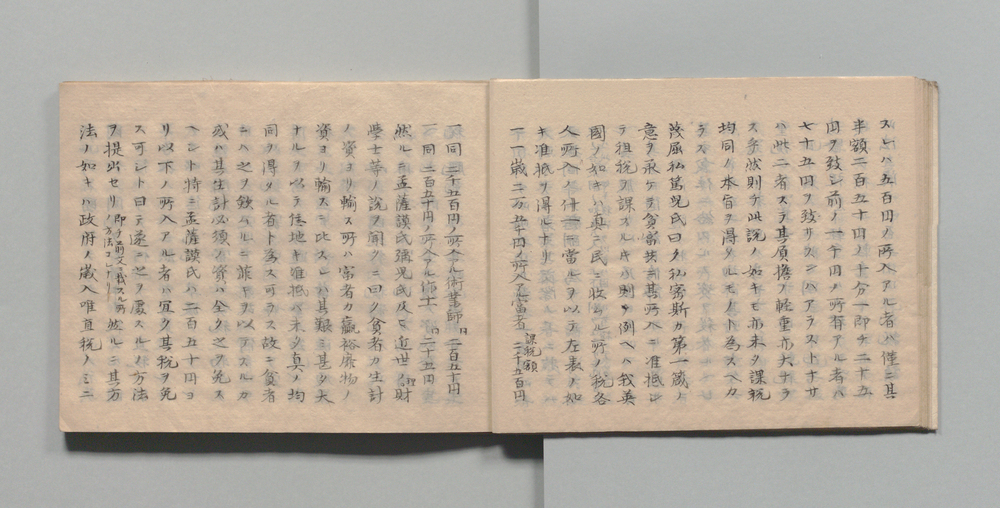 スレハ五百円ノ所入アル者ハ僅ニ其
半額二百五十円ノ十分一即チ二十五
円ヲ致シ前ノ一千円ノ所有アル者ハ
七十五円ヲ致サスンハアラスト十サ
ハ此二者スラ其負擔ノ軽重亦大ナラ
ス乎然則チ此説ノ如キモ亦未タ課税
均同ノ本旨ヲ得タルモノト為スヘカ
ラス
茂屈私篤児氏曰ク私密斯カ第一蔵ノ
意ヲ承ケテ貧富共ニ其所入ニ准抵シ
テ租税ヲ課スルキハ則チ例ヘハ我英
国ノ如キハ真ニ民ニ收ムル所ノ税各
人所入ノ什一ニ當ルヲ以テ左表ノ如
キ准抵ヲ得ルナリ
課税額
一一歳二万五千円ノ所入アル富者 二千五百円
一同 二千五百円ノ所入アル術業師 二百五十円
一同 二百五十円ノ所入アル作工 二十五円
然ルニ孟薩謨氏彌児氏及ヒ近世ノ理財
學士華ノ説ヲ聞クニ曰ク貧者カ生計
ノ資ヨリ輸スル所ハ富者カ贏裕靡物ノ
資ヨリ輸スニ比スレハ其艱ミ甚タ大
ナルヲ以テ倍地キ准抵ハ未タ真ノ均
同ヲ得タル者ト為ス可ラス故ニ貧者
ニハ之ヲ斂ハルニ菲キヲ以テスルカ
或ハ其生計必須ノ資ハ全ク之ヲ免ス
ヘシト特ニ孟薩謨氏ハ二百五十円ヨ
リ以下ノ所入アル者ハ宜ク其税ヲ免
ス可シト曰テ遂ニ之ヲ處スルノ方法
ヲ提出セリ 即チ前文ニ載スル所ノ方法コレナリ 彼ルニ其方
法ノ如キハ政府ノ歳入唯直税ノミニ